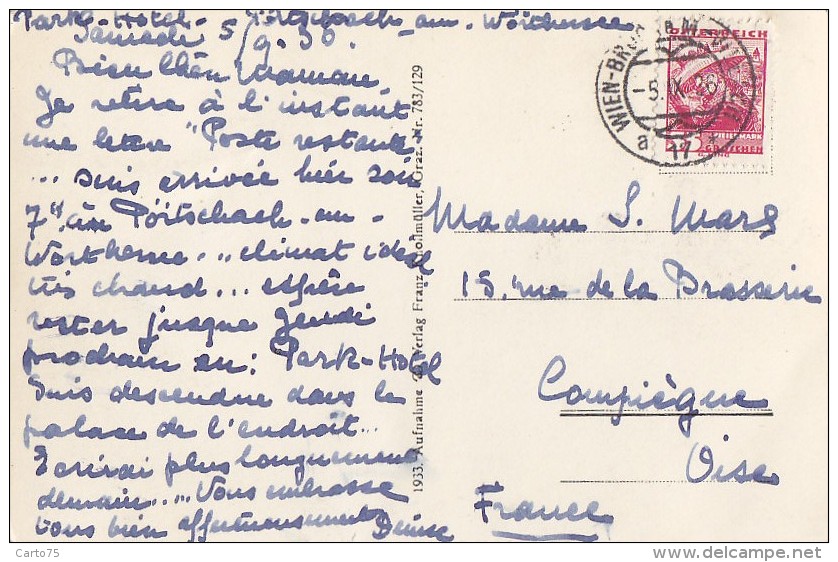 Park-Hotel-Pörtschach-am-Wörthersee
Samedi 5/9.36.
Bien Chère Maman,
Je retire à l'instant
une lettre "Poste restante"
... suis arrivée hier soir
7h à Pörtschach-am-
Wörthersee... climat idéal
très chaud... espère
rester jusque Jeudi
prochain au: Park-Hotel
Suis descendue dans le
palace de l'endroit...
Ecrirai plus longuement
demain.... Vous embrasse
tous bien affectueusement
Denise
1933. Aufnahme Verlag Franz Knollmüller, Graz. Nr. 783/129
ÖSTERREICH
GROSCHEN
WIEN-BR
-5.IX.36
a 17
Madame S. Mars
15, rue de la Brasserie
Compiègne
Oise
France
Carto75
delcampe.net